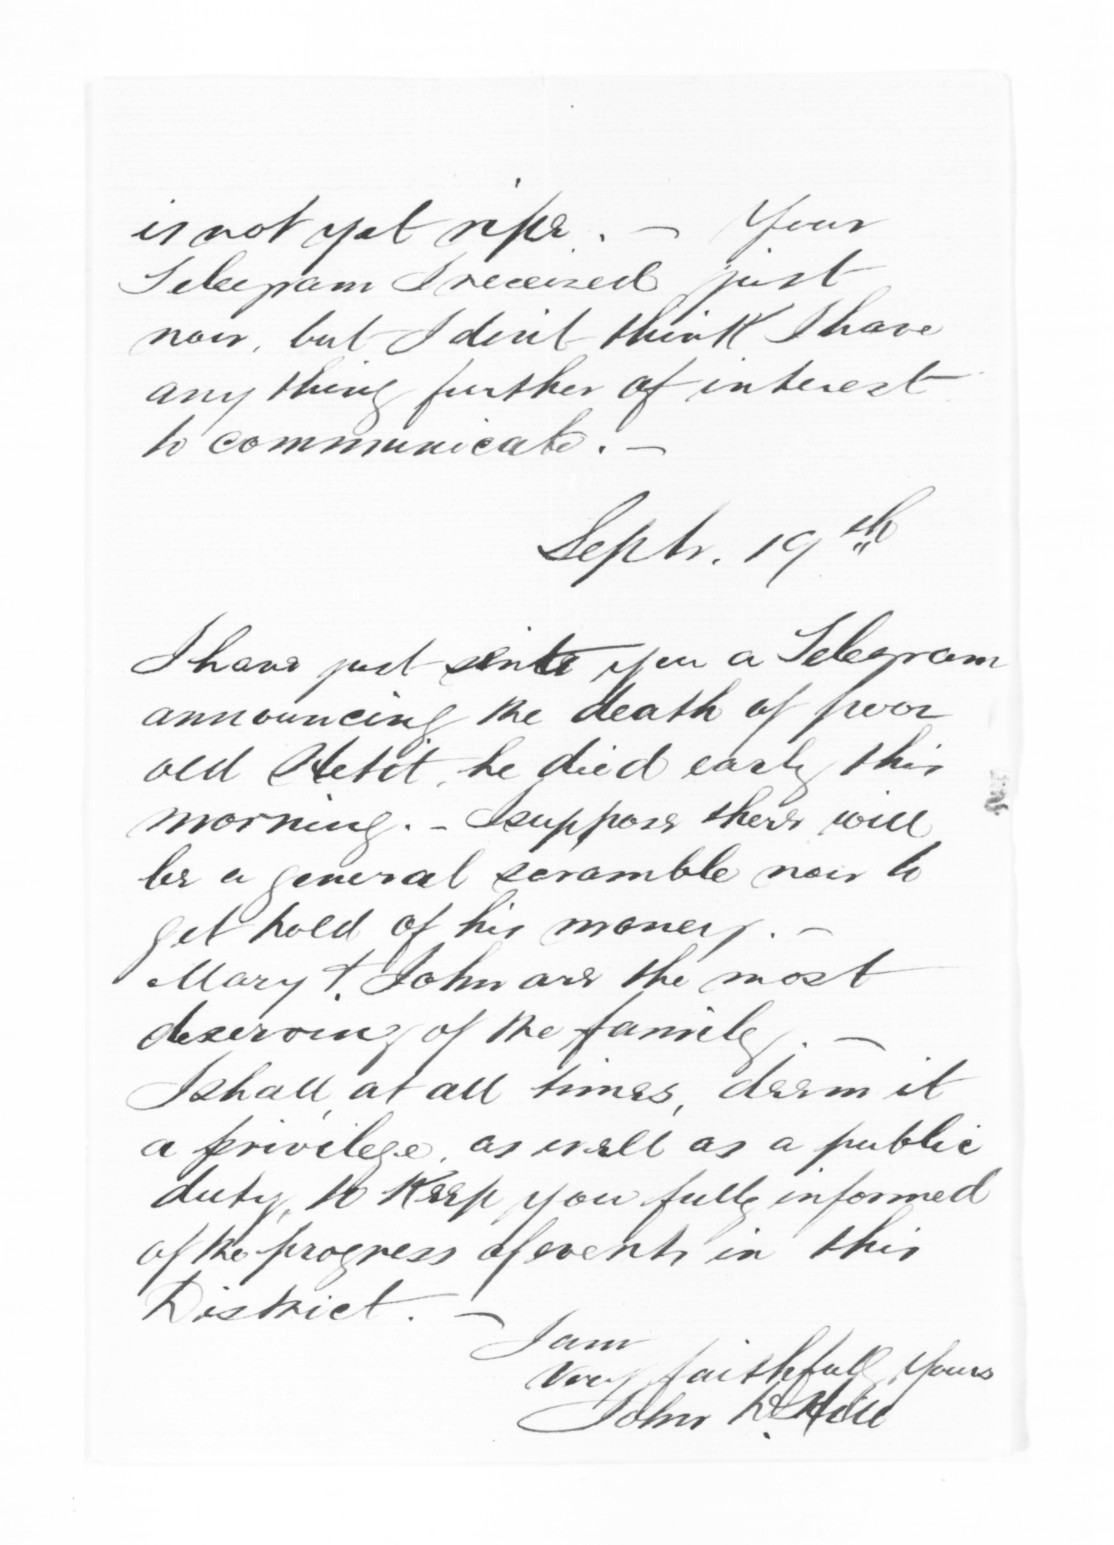 is not yet ripe. — Your
Telegram I received just
now, but I dint think I have
any thing further of interest
to communicate. —
Septr. 19th
I have just sent you a Telegram
announcing the death of poor
old Hetit, he died early this
morning. - I suppose there will
be a general scramble now to
get hold of his money. —
Mary & John are the most
deserving of the family. —
I shall, at all times, deem it
a privilege, as well as a public
duty, to keep you fully informed
of the progress of events in this
District. —
I am
Very faithfully Yours
John Hill